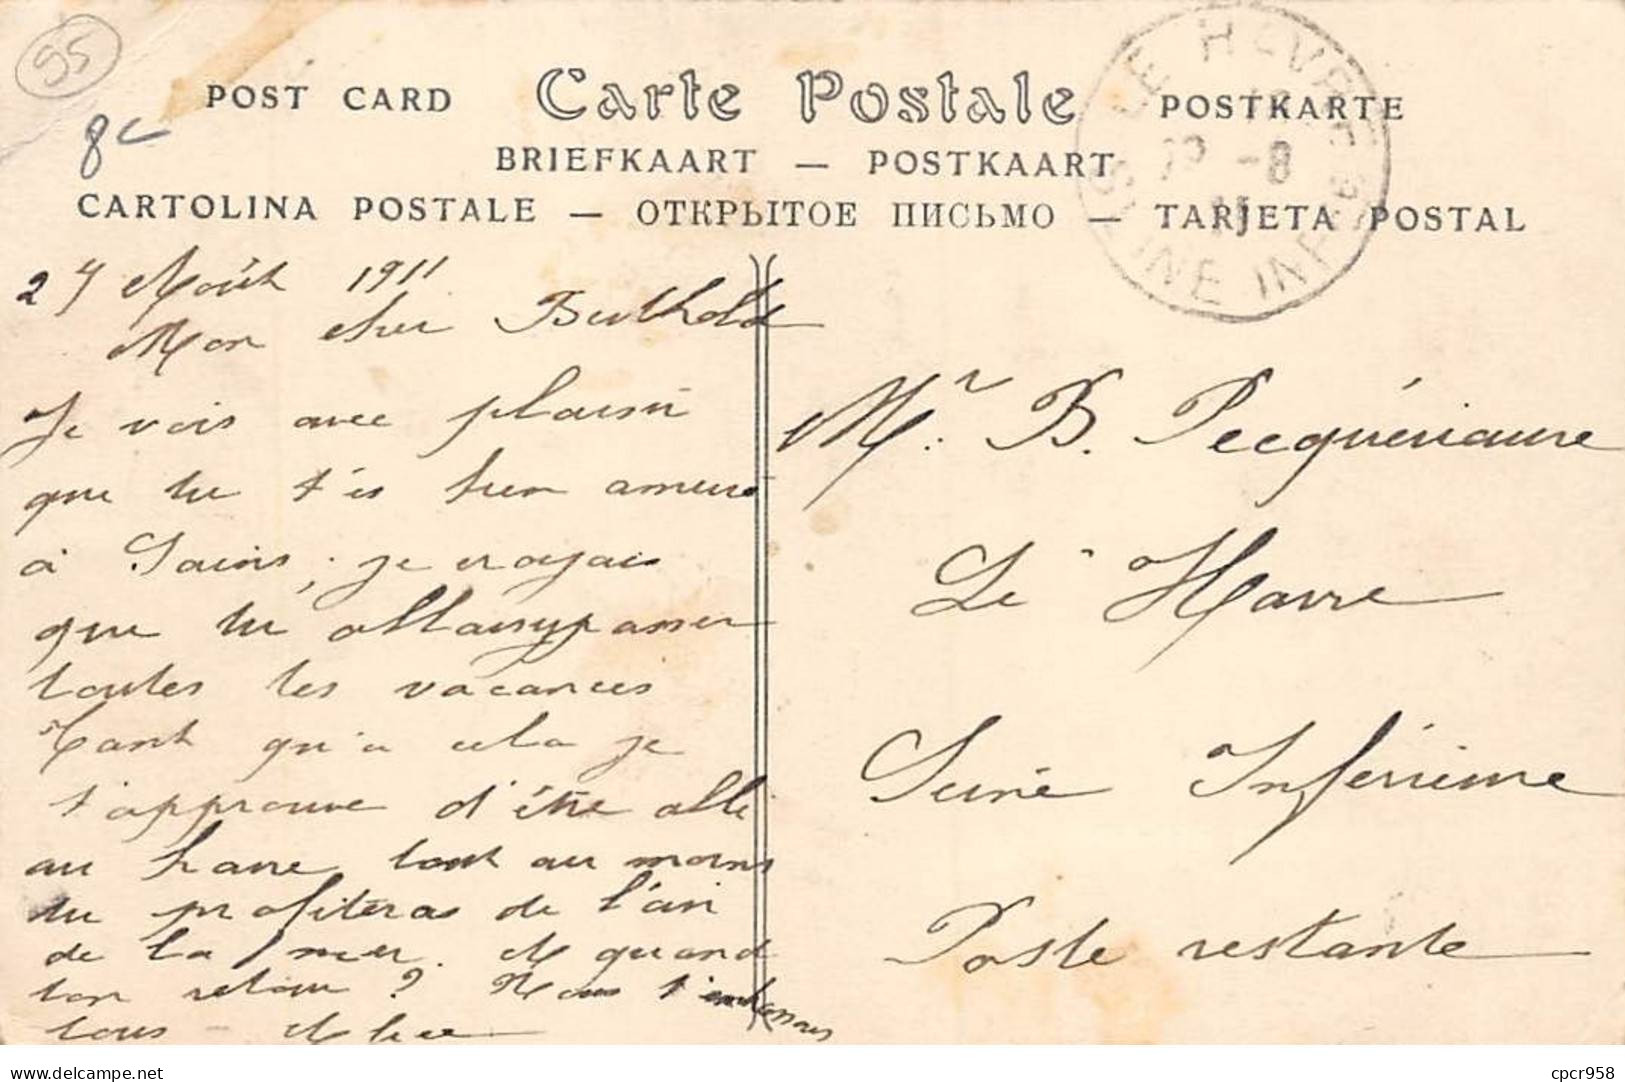 95
POST CARD Carte Postale POSTKARTE
8
BRIEFKAART — POSTKAART
CARTOLINA POSTALE — ОТКРЫТОЕ ПИСЬМО — TARJETA POSTAL
LE HAVRE
-8
INE INF
24 Août 1911
Mon cher Berthold
Je vois avec plaisir
que tu t'es bien amusé
à Sains, je croyais
que tu allais y passer
toutes les vacances
Tant qu'à cela je
t'approuve d'être allé
au havre, tout au moins
tu profiteras de l'air
de la mer. A quand
ton retour ? Nous t'embrassons
tous
Mr. B. Pecquériaume
Le Havre
Seine Inférieure
Poste restante
cpcr958